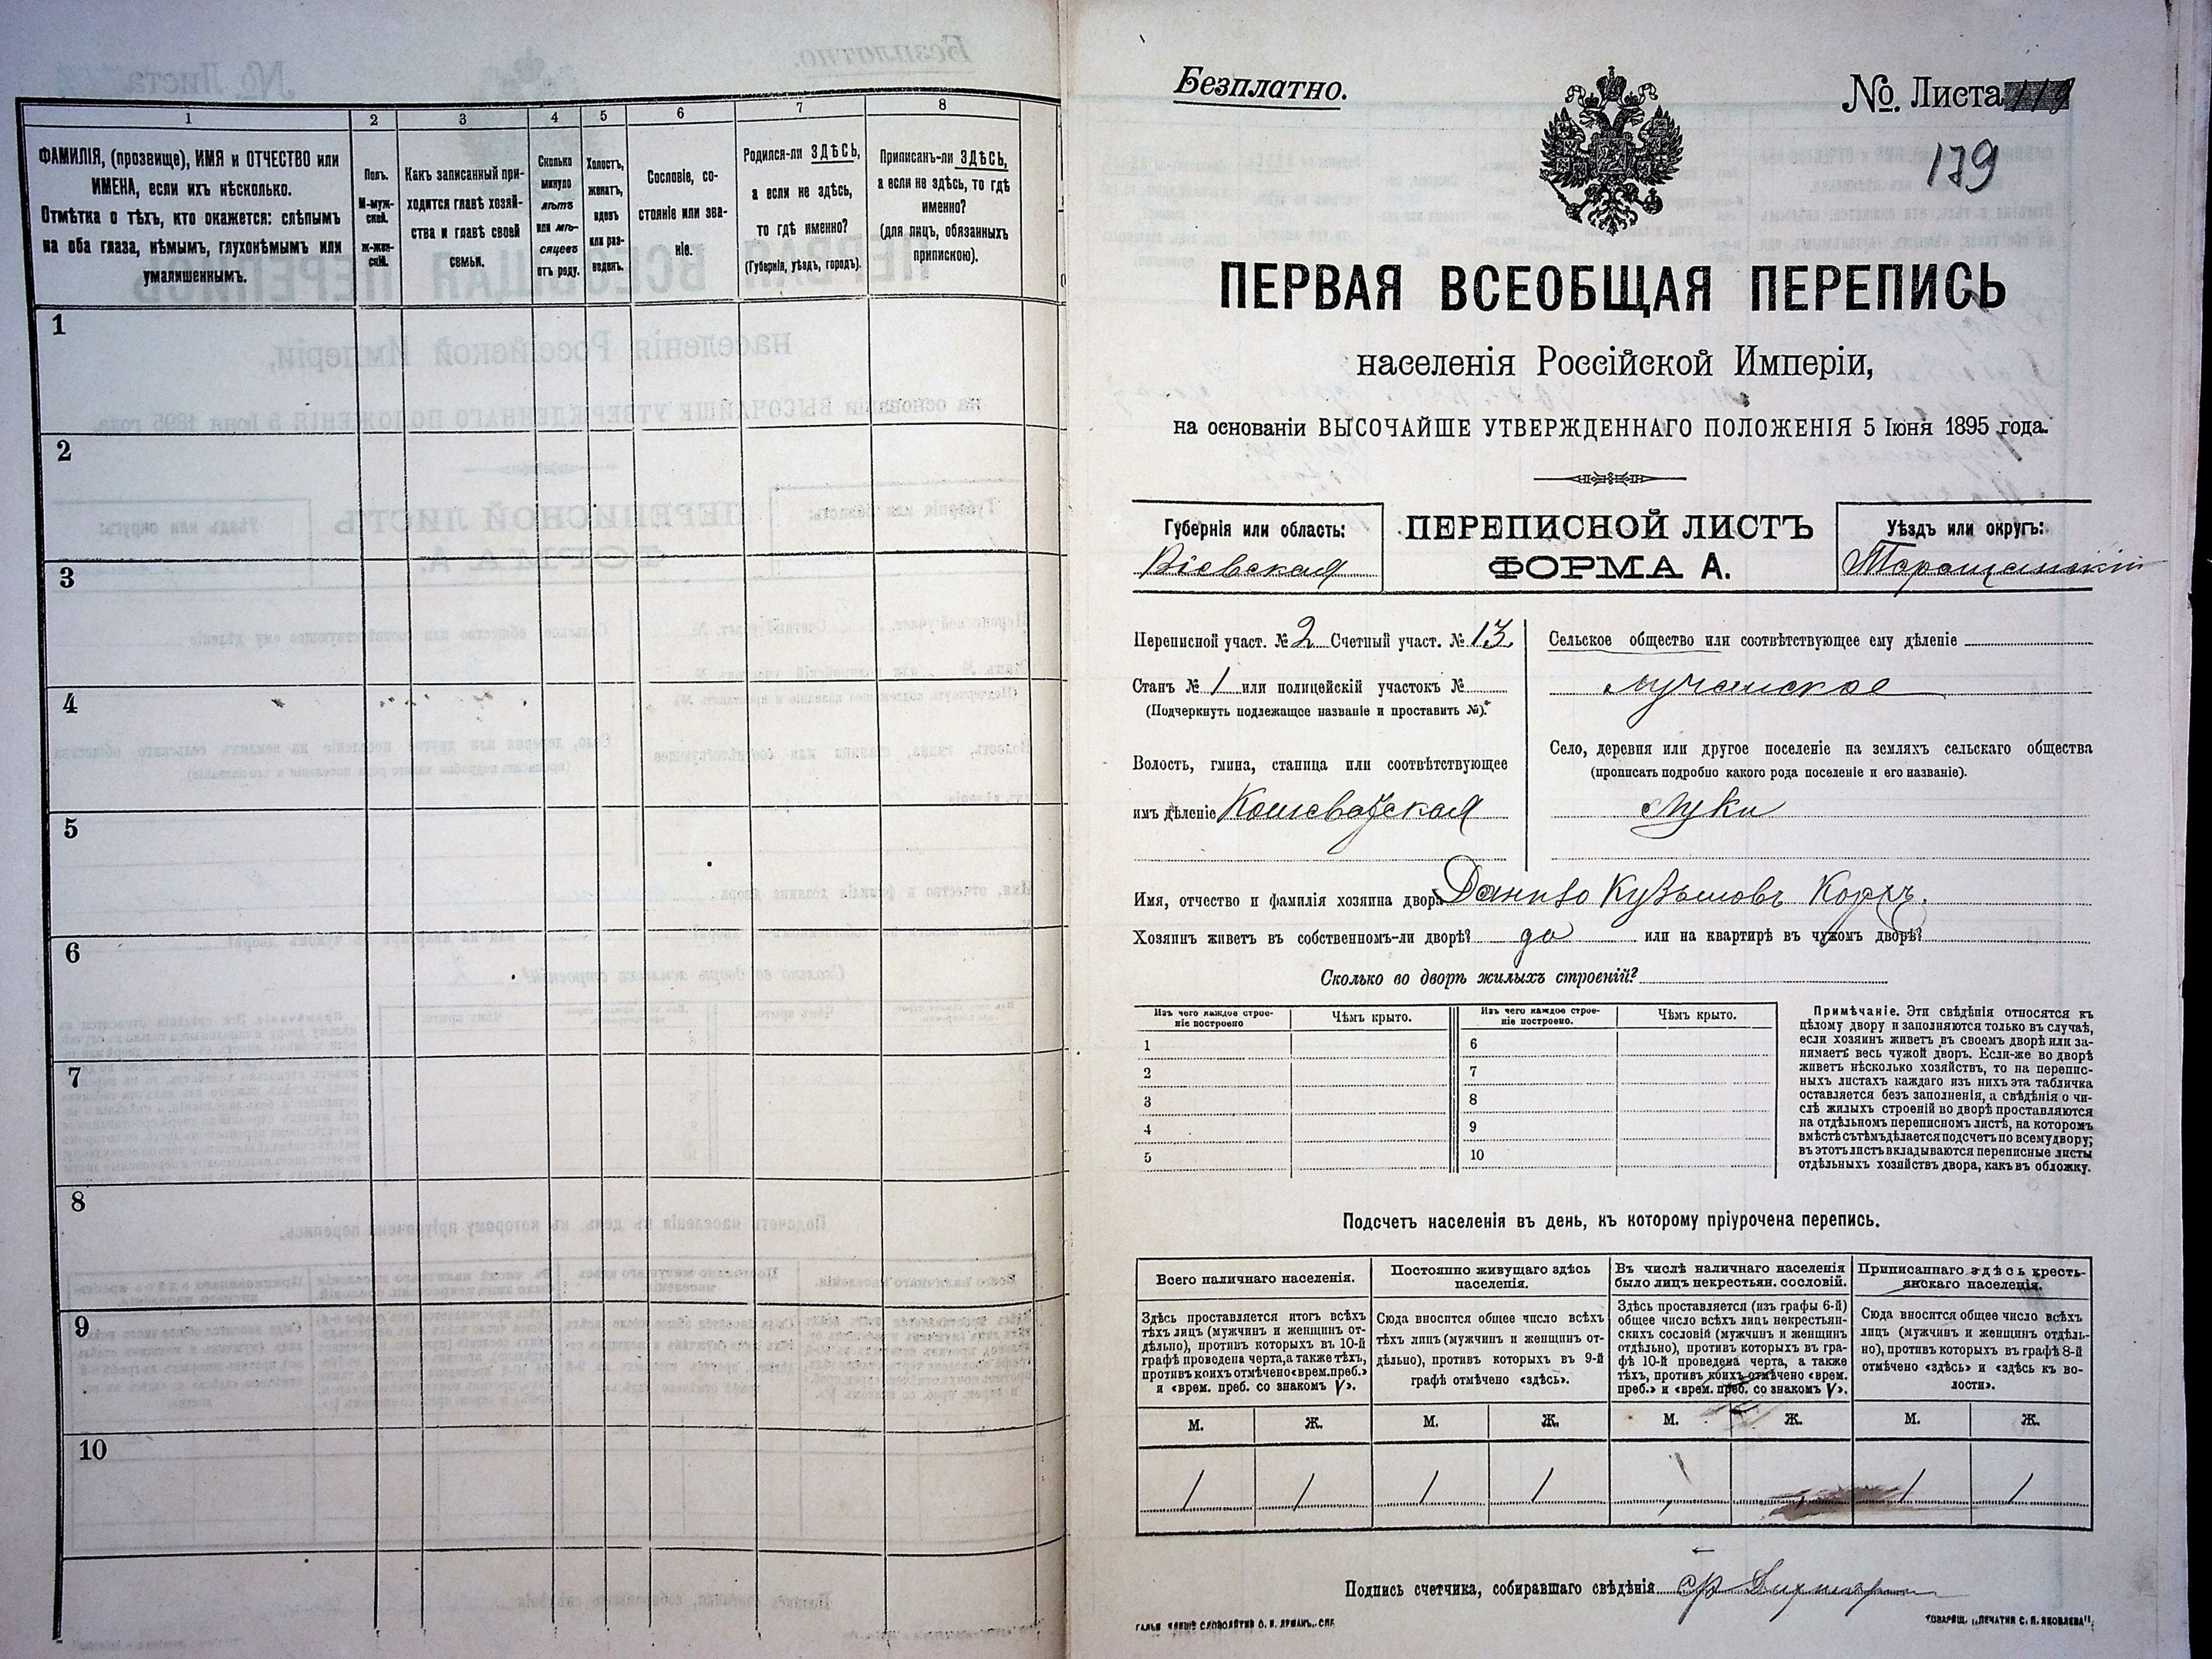 1
2
3
4
5
6
7
8
ФАМИЛІЯ, (прозвище), ИМЯ и ОТЧЕСТВО или
ИМЕНА, если ихъ нѣсколько.
Отмѣтка о тѣхъ, кто окажется: слѣпымъ
на оба глаза, нѣмымъ, глухонѣмымъ или
умалишеннымъ.
Полъ.
М-муж-
ской.
ж-жен-
скій.
Какъ записанный при-
ходится главѣ хозяй-
ства и главѣ своей
семьи.
Сколько
минуло
лѣтъ
или мѣ-
сяцевъ
отъ роду.
Холостъ,
женатъ,
вдовъ
или раз-
веденъ.
Сословіе, со-
стояніе или зва-
ніе.
Родился-ли ЗДѢСЬ,
а если не здѣсь,
то гдѣ именно?
(Губернія, уѣздъ, городъ).
Приписанъ-ли ЗДѢСЬ,
а если не здѣсь, то гдѣ
именно?
(для лицъ, обязанныхъ
припискою).
1
2
3
4
5
6
7
8
9
10
Безплатно.
№ Листа
179
ПЕРВАЯ ВСЕОБЩАЯ ПЕРЕПИСЬ
населенія Россійской Имперіи,
на основаніи ВЫСОЧАЙШЕ УТВЕРЖДЕННАГО ПОЛОЖЕНІЯ 5 Іюня 1895 года.
Губернія или область:
Кіевская
ПЕРЕПИСНОЙ ЛИСТЪ
ФОРМА А.
Уѣздъ или округъ:
Таращанскій
Переписной участ. № 2 Счетный участ. № 13
Станъ № 1 или полицейскій участокъ №
(Подчеркнуть подлежащее названіе и проставить №).
Волость, гмина, станица или соотвѣтствующее
имъ дѣленіе Кошеватская
Сельское общество или соотвѣтствующее ему дѣленіе
Лучанское
Село, деревня или другое поселеніе на земляхъ сельскаго общества
(прописать подробно какого рода поселеніе и его названіе).
Луки
Имя, отчество и фамилія хозяина двора Данило Кузьмовъ
Хозяинъ живетъ въ собственномъ-ли дворѣ? да или на квартирѣ въ чужомъ дворѣ?
Сколько во дворѣ жилыхъ строеній?
Изъ чего каждое строе-
ніе построено
Чѣмъ крыто.
Изъ чего каждое строе-
ніе построено.
Чѣмъ крыто.
1
2
3
4
5
6
7
8
9
10
Примѣчаніе. Эти свѣдѣнія относятся къ
цѣлому двору и заполняются только въ случаѣ,
если хозяинъ живетъ въ своемъ дворѣ или за-
нимаетъ весь чужой дворъ. Если-же во дворѣ
живетъ нѣсколько хозяйствъ, то на перепис-
ныхъ листахъ каждаго изъ нихъ эта табличка
оставляется безъ заполненія, а свѣдѣнія о чи-
слѣ жилыхъ строеній во дворѣ проставляются
на отдѣльномъ переписномъ листѣ, на которомъ
вмѣстѣ съ тѣмъ дѣлается подсчетъ по всему двору;
въ этотъ листъ вкладываются переписные листы
отдѣльныхъ хозяйствъ двора, какъ въ обложку.
Подсчетъ населенія въ день, къ которому пріурочена перепись.
Всего наличнаго населенія.
Здѣсь проставляется итогъ всѣхъ
тѣхъ лицъ (мужчинъ и женщинъ от-
дѣльно), противъ которыхъ въ 10-й
графѣ проведена черта, а также тѣхъ,
противъ коихъ отмѣчено «врем. преб.»
и «врем. преб. со знакомъ V».
М. Ж.
1 1
Постоянно живущаго здѣсь
населенія.
Сюда вносится общее число всѣхъ
тѣхъ лицъ (мужчинъ и женщинъ от-
дѣльно), противъ которыхъ въ 9-й
графѣ отмѣчено «здѣсь».
М. Ж.
1 1
Въ числѣ наличнаго населенія
было лицъ некрестьян. сословій.
Здѣсь проставляется (изъ графы 6-й)
общее число всѣхъ лицъ некрестьян-
скихъ сословій (мужчинъ и женщинъ
отдѣльно), противъ которыхъ въ гра-
фѣ 10-й проведена черта, а также
тѣхъ, противъ коихъ отмѣчено «врем.
преб.» и «врем. преб. со знакомъ V».
М. Ж.
Приписаннаго здѣсь кресть-
янскаго населенія.
Сюда вносится общее число всѣхъ
лицъ (мужчинъ и женщинъ отдѣль-
но), противъ которыхъ въ графѣ 8-й
отмѣчено «здѣсь» и «здѣсь къ во-
лости».
М. Ж.
1 1
Подпись счетчика, собиравшаго свѣдѣнія
ТОВАРИЩ. „ПЕЧАТНИ С. П. ЯКОВЛЕВА"